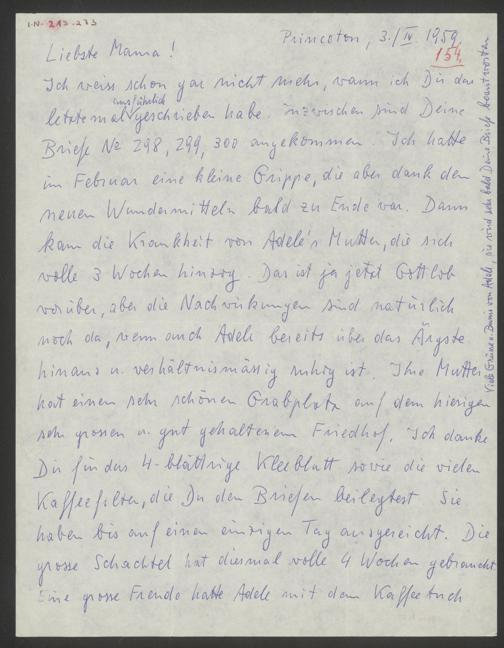 I.N. 213.273
Princeton, 3./IV 1959.
154
Liebste Mama!
Ich weiss schon gar nicht mehr, wann ich Dir das
letztemal ausführlich geschrieben habe. inzwischen sind Deine
Briefe No 298, 299, 300 angekommen. Ich hatte
im Februar eine kleine Grippe, die aber dank den
neuen Wundermitteln bald zu Ende war. Dann
kam die Krankheit von Adele's Mutter, die sich
volle 3 Wochen hinzog. Das ist ja jetzt Gottlob
vorüber, aber die Nachwirkungen sind natürlich
noch da, wenn auch Adele bereits über das Ärgste
hinaus u. verhältnismässig ruhig ist. Ihre Mutter
hat einen sehr schönen Grabplatz auf dem hiesigen
sehr grossen u. gut gehaltenem Friedhof. Ich danke
Dir für das 4-blättrige Kleeblatt sowie die vielen
Kaffeefilter, die Du den Briefen beilegtest. Sie
haben bis auf einen einzigen Tag ausgereicht. Die
grosse Schachtel hat diesmal volle 4 Wochen gebraucht
Eine grosse Freude hatte Adele mit dem Kaffeetuch
Viele Grüsse u. Bussi von Adele, sie wird sehr bald Deine Briefe beantworten